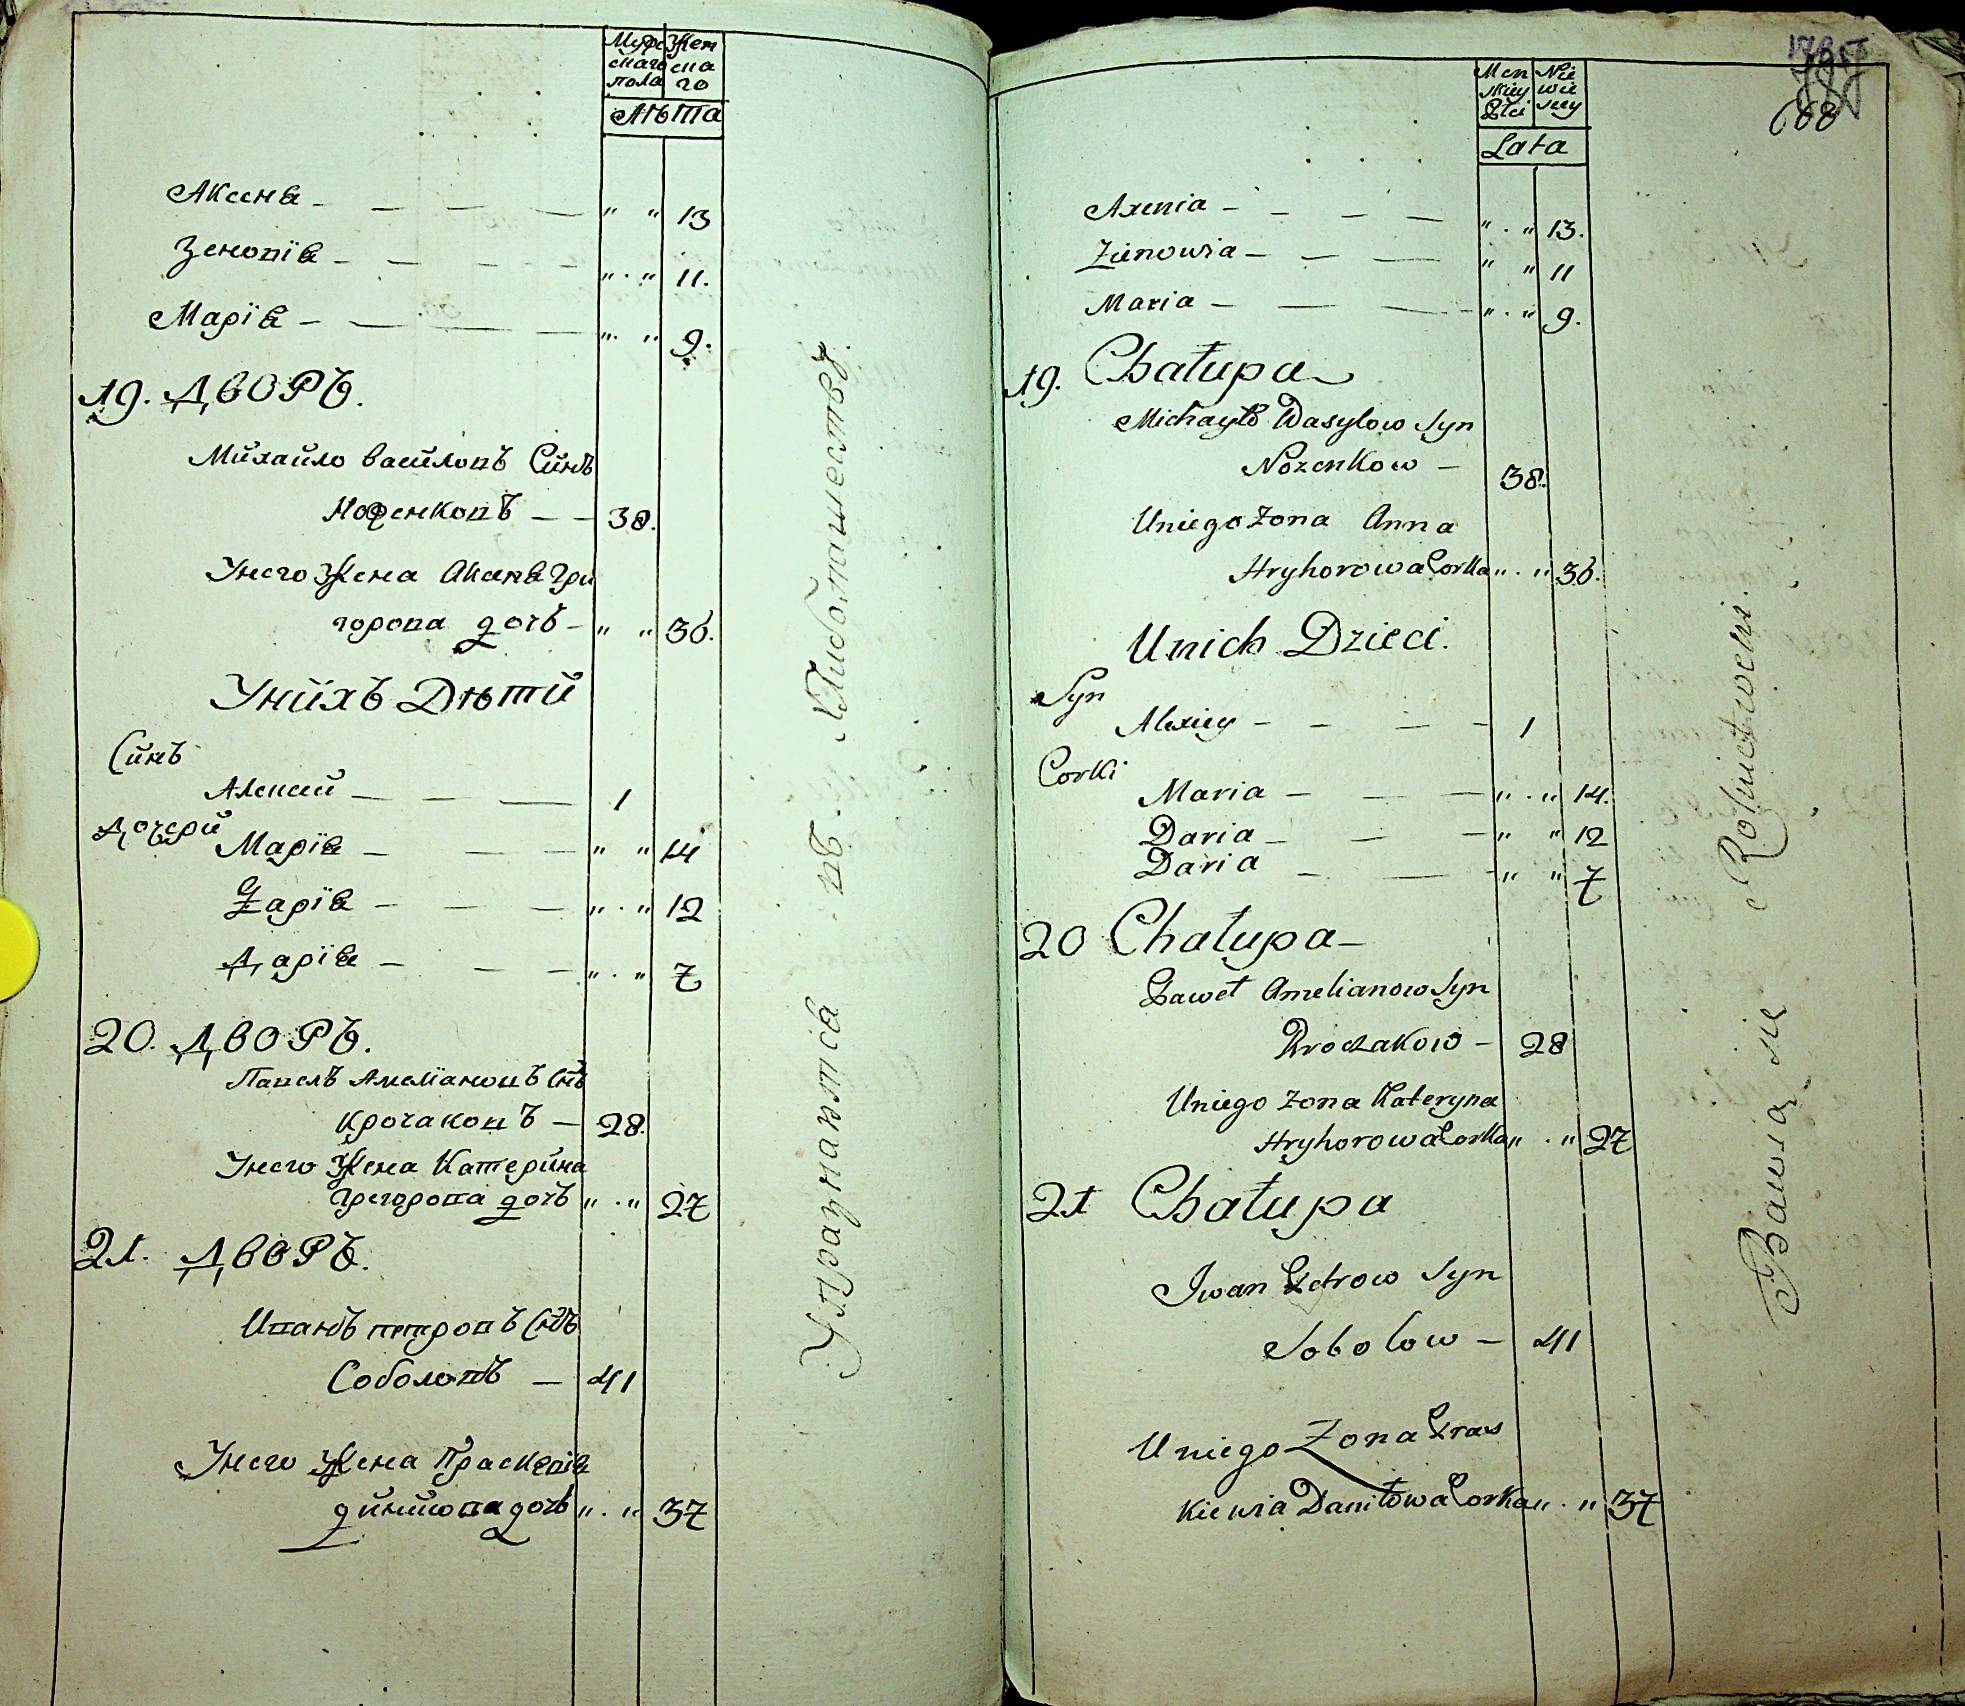 Мужс Жен
скаго ска
пола го
Лѣта
Аксенѣ - 〃 〃 13
Зеновіѣ - 〃 〃 11.
Маріѣ - 〃 〃 9.
19. ДВОРЪ.
Михайло василовъ Синъ
Нозенковъ - 38.
Унего Жена Гри
горова дочь - 〃 〃 36.
Унихъ Дѣти
Синъ
Алексей - 1
Дочери
Маріѣ - 〃 〃 14
Даріѣ - 〃 〃 12
Даріѣ - 〃 〃 7
20. ДВОРЪ.
Павелъ Амеліановъ Снъ
Крочаковъ - 28.
Унего Жена Катерина
Грегорова дочь 〃 〃 27
21. ДВОРЪ.
Иванъ петровъ Снъ
Соболовъ - 41
Унего Жена Прасковія
дочь 〃 〃 37
Упразнаются въ Хлибопашествѣ.
68
Men Nie
skiey wie
Płci skiey
Lata
Axenia - 〃 〃 13.
Zienowia - 〃 〃 11
Maria - 〃 〃 9.
19. Chałupa
Michayło Wasylow Syn
Nozenkow - 38.
Uniego Zona Anna
Hryhorowa Corka 〃 〃 36.
Unich Dzieci.
Syn
Alexiey - 1
Corki
Maria - 〃 〃 14.
Daria - 〃 〃 12
Daria - 〃 〃 7
20 Chałupa -
Paweł Amelianow Syn
Kroczakow - 28
Uniego Zona Kateryna
Hryhorowa Corka 〃 〃 27
21 Chałupa
Iwan Petrow Syn
Sobolow - 41
Uniego Zona Pras
kiewia Daniłowa Corka 〃 〃 37
Bawią się Rolnictwem.